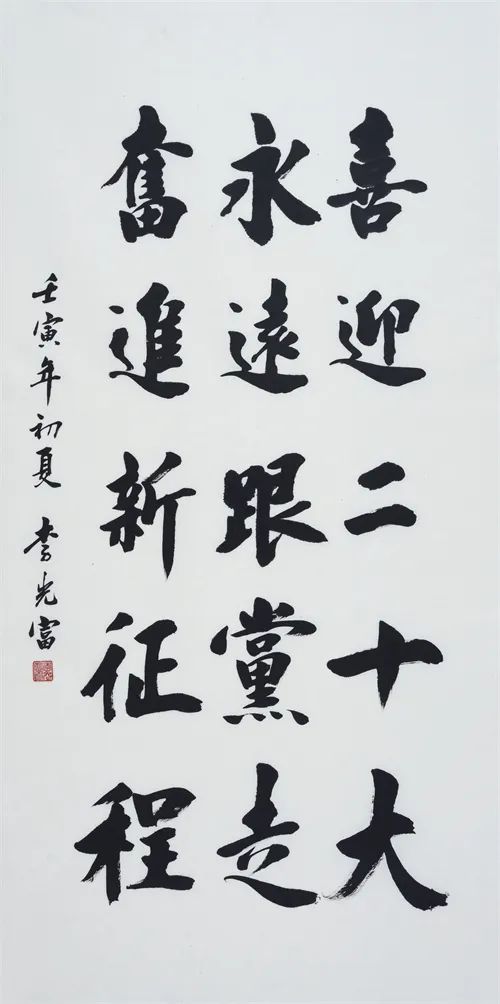 喜迎二十大
永遠跟黨走
奮進新征程
壬寅年初夏 李光富